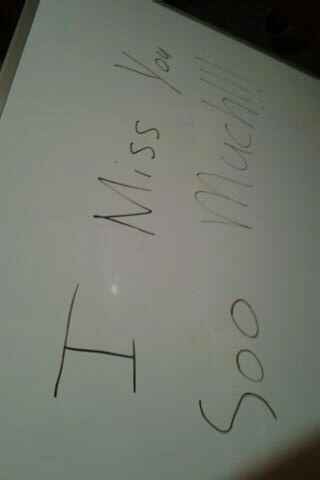 I Miss You
Soo Much!!!